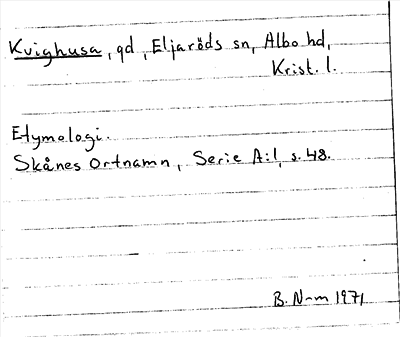 Kvighusa, gd, Eljaröds sn, Albo hd,
Krist. l.
Etymologi.
Skånes Ortnamn, Serie A:1, s. 48.
B. N-m 1971